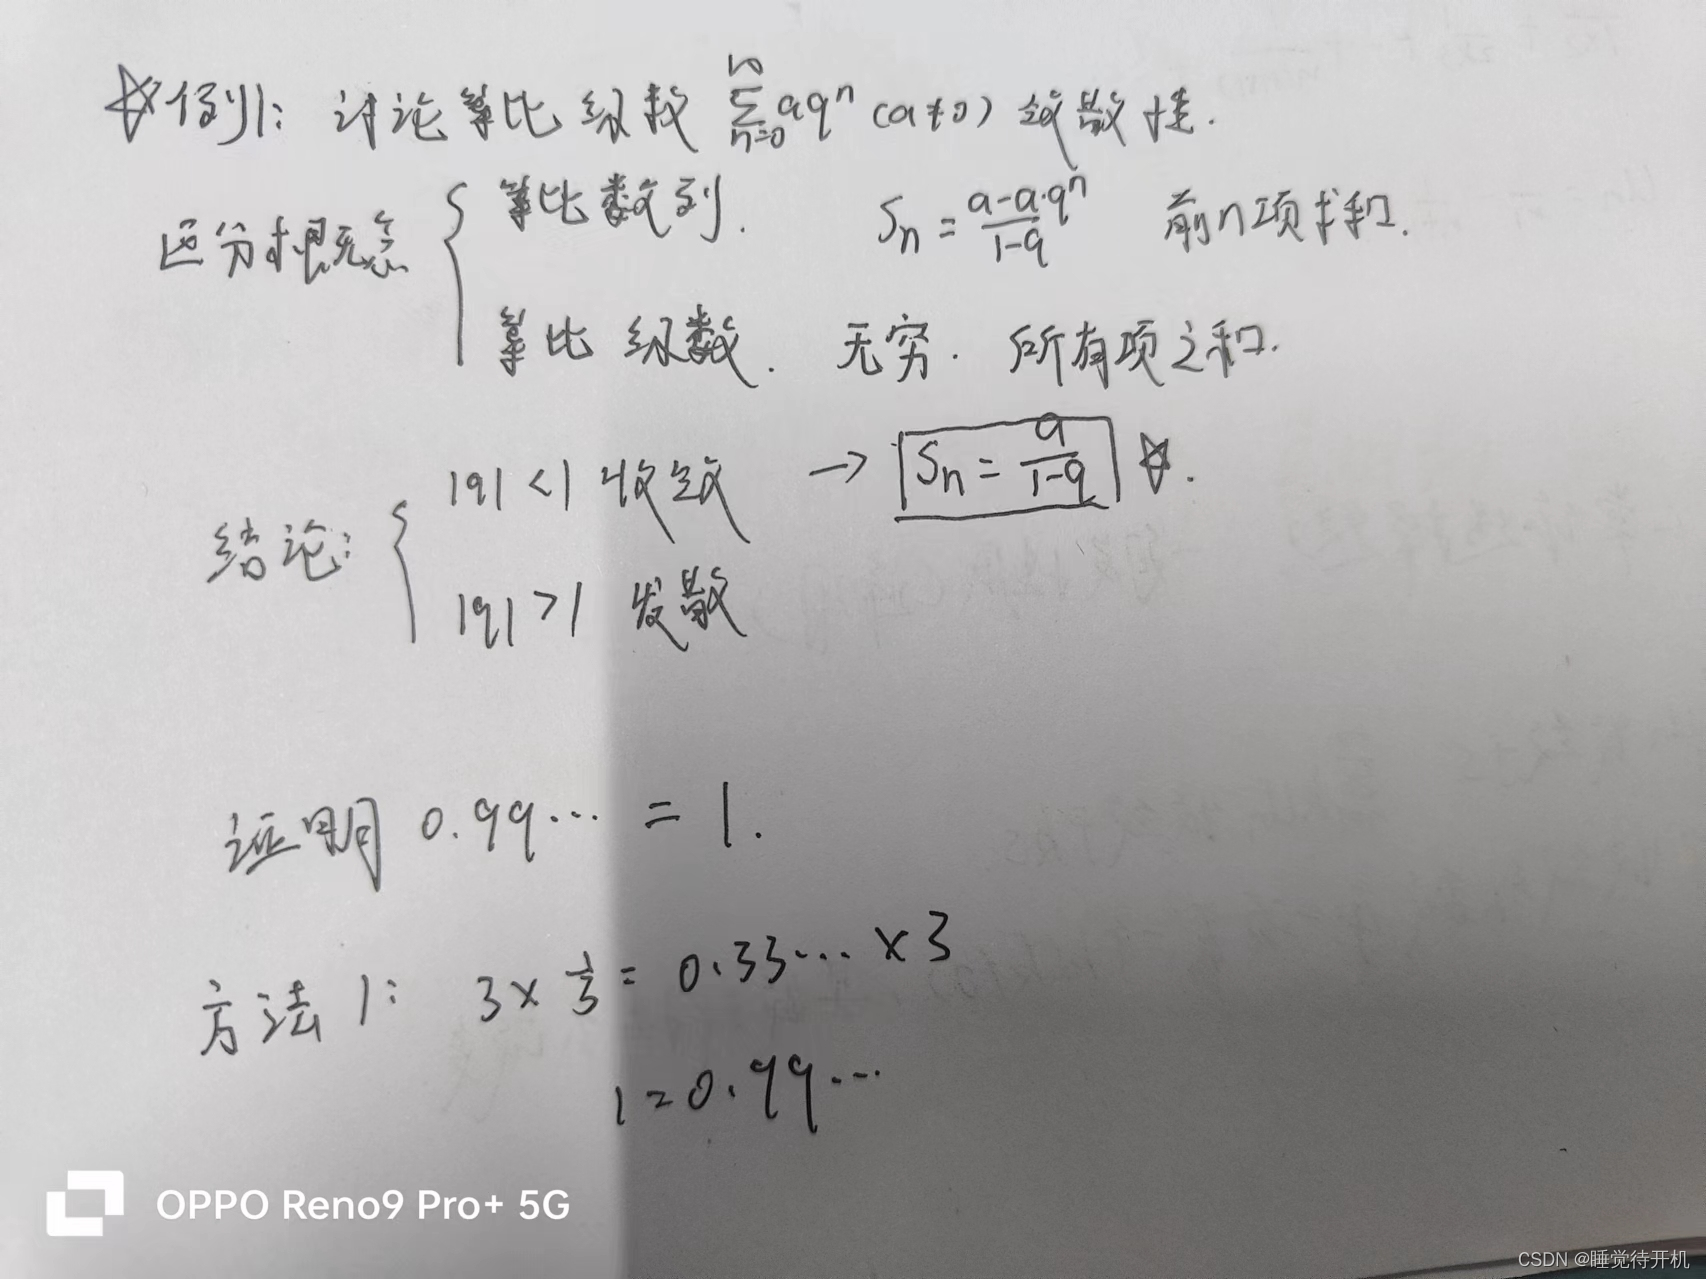 ☆例1: 讨论等比级数 ∑_{n=0}^{∞} aq^n (a≠0) 敛散性.
区分概念 { 等比数列. S_n = \frac{a-a·q^n}{1-q} 前n项求和.
等比级数. 无穷. 所有项之和.
结论: { |q|<1 收敛 → S_n = \frac{a}{1-q} ☆.
|q|>1 发散
证明 0.99… = 1.
方法1: 3×\frac{1}{3} = 0.33…×3
1=0.99…
OPPO Reno9 Pro+ 5G
CSDN @睡觉待开机